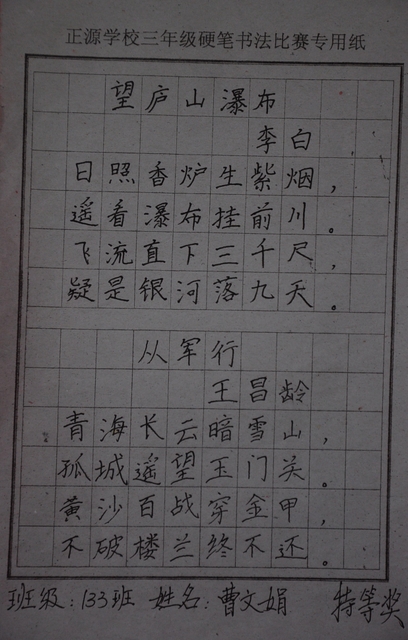 正源学校三年级硬笔书法比赛专用纸
望庐山瀑布
李白
日照香炉生紫烟，
遥看瀑布挂前川。
飞流直下三千尺，
疑是银河落九天。
从军行
王昌龄
青海长云暗雪山，
孤城遥望玉门关。
黄沙百战穿金甲，
不破楼兰终不还。
班级：133班 姓名：曹文娟 特等奖